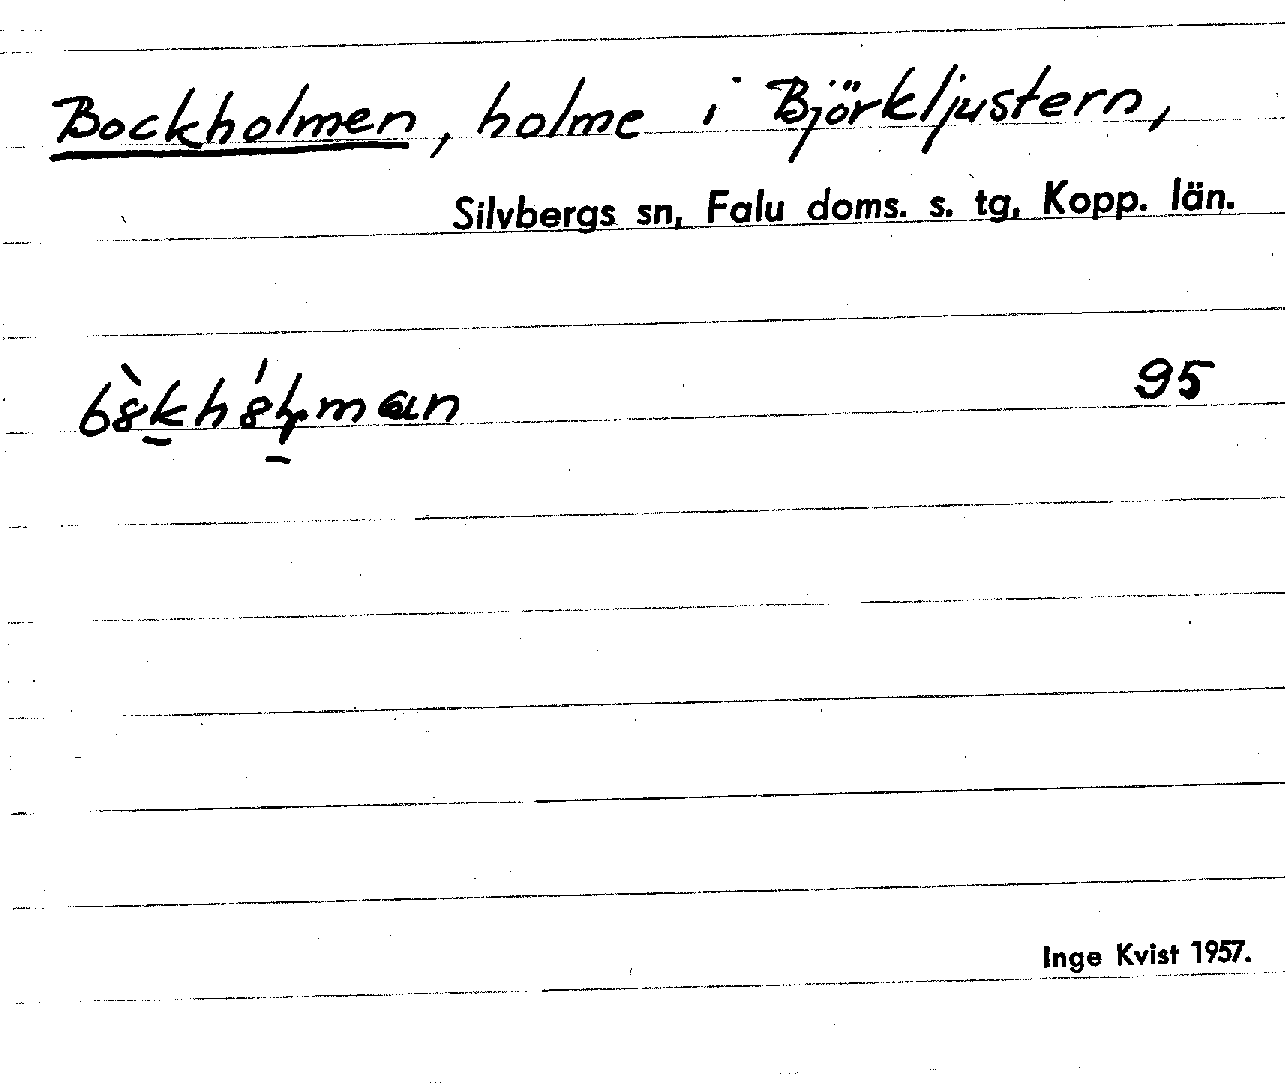 Bockholmen, holme i Björkljustern,
Silvbergs sn, Falu doms. s. tg, Kopp. län.
95
Inge Kvist 1957.